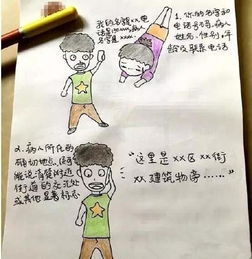 我的名字xx电
话是xxxxx,病人
名字是xxx.
1、你的名字和
电话号码,病人
姓名、性别、年
龄及联系电话
2、病人所在的
确切地点,尽可
能说清楚附近
街道的交汇处
或其他显著标志
“这里是xx区xx街
xx建筑物旁……”